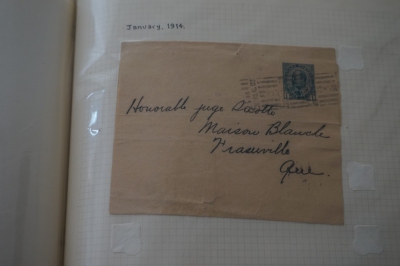 January, 1914.
Honorable juge
Maison Blanche
Fraserville
Que.